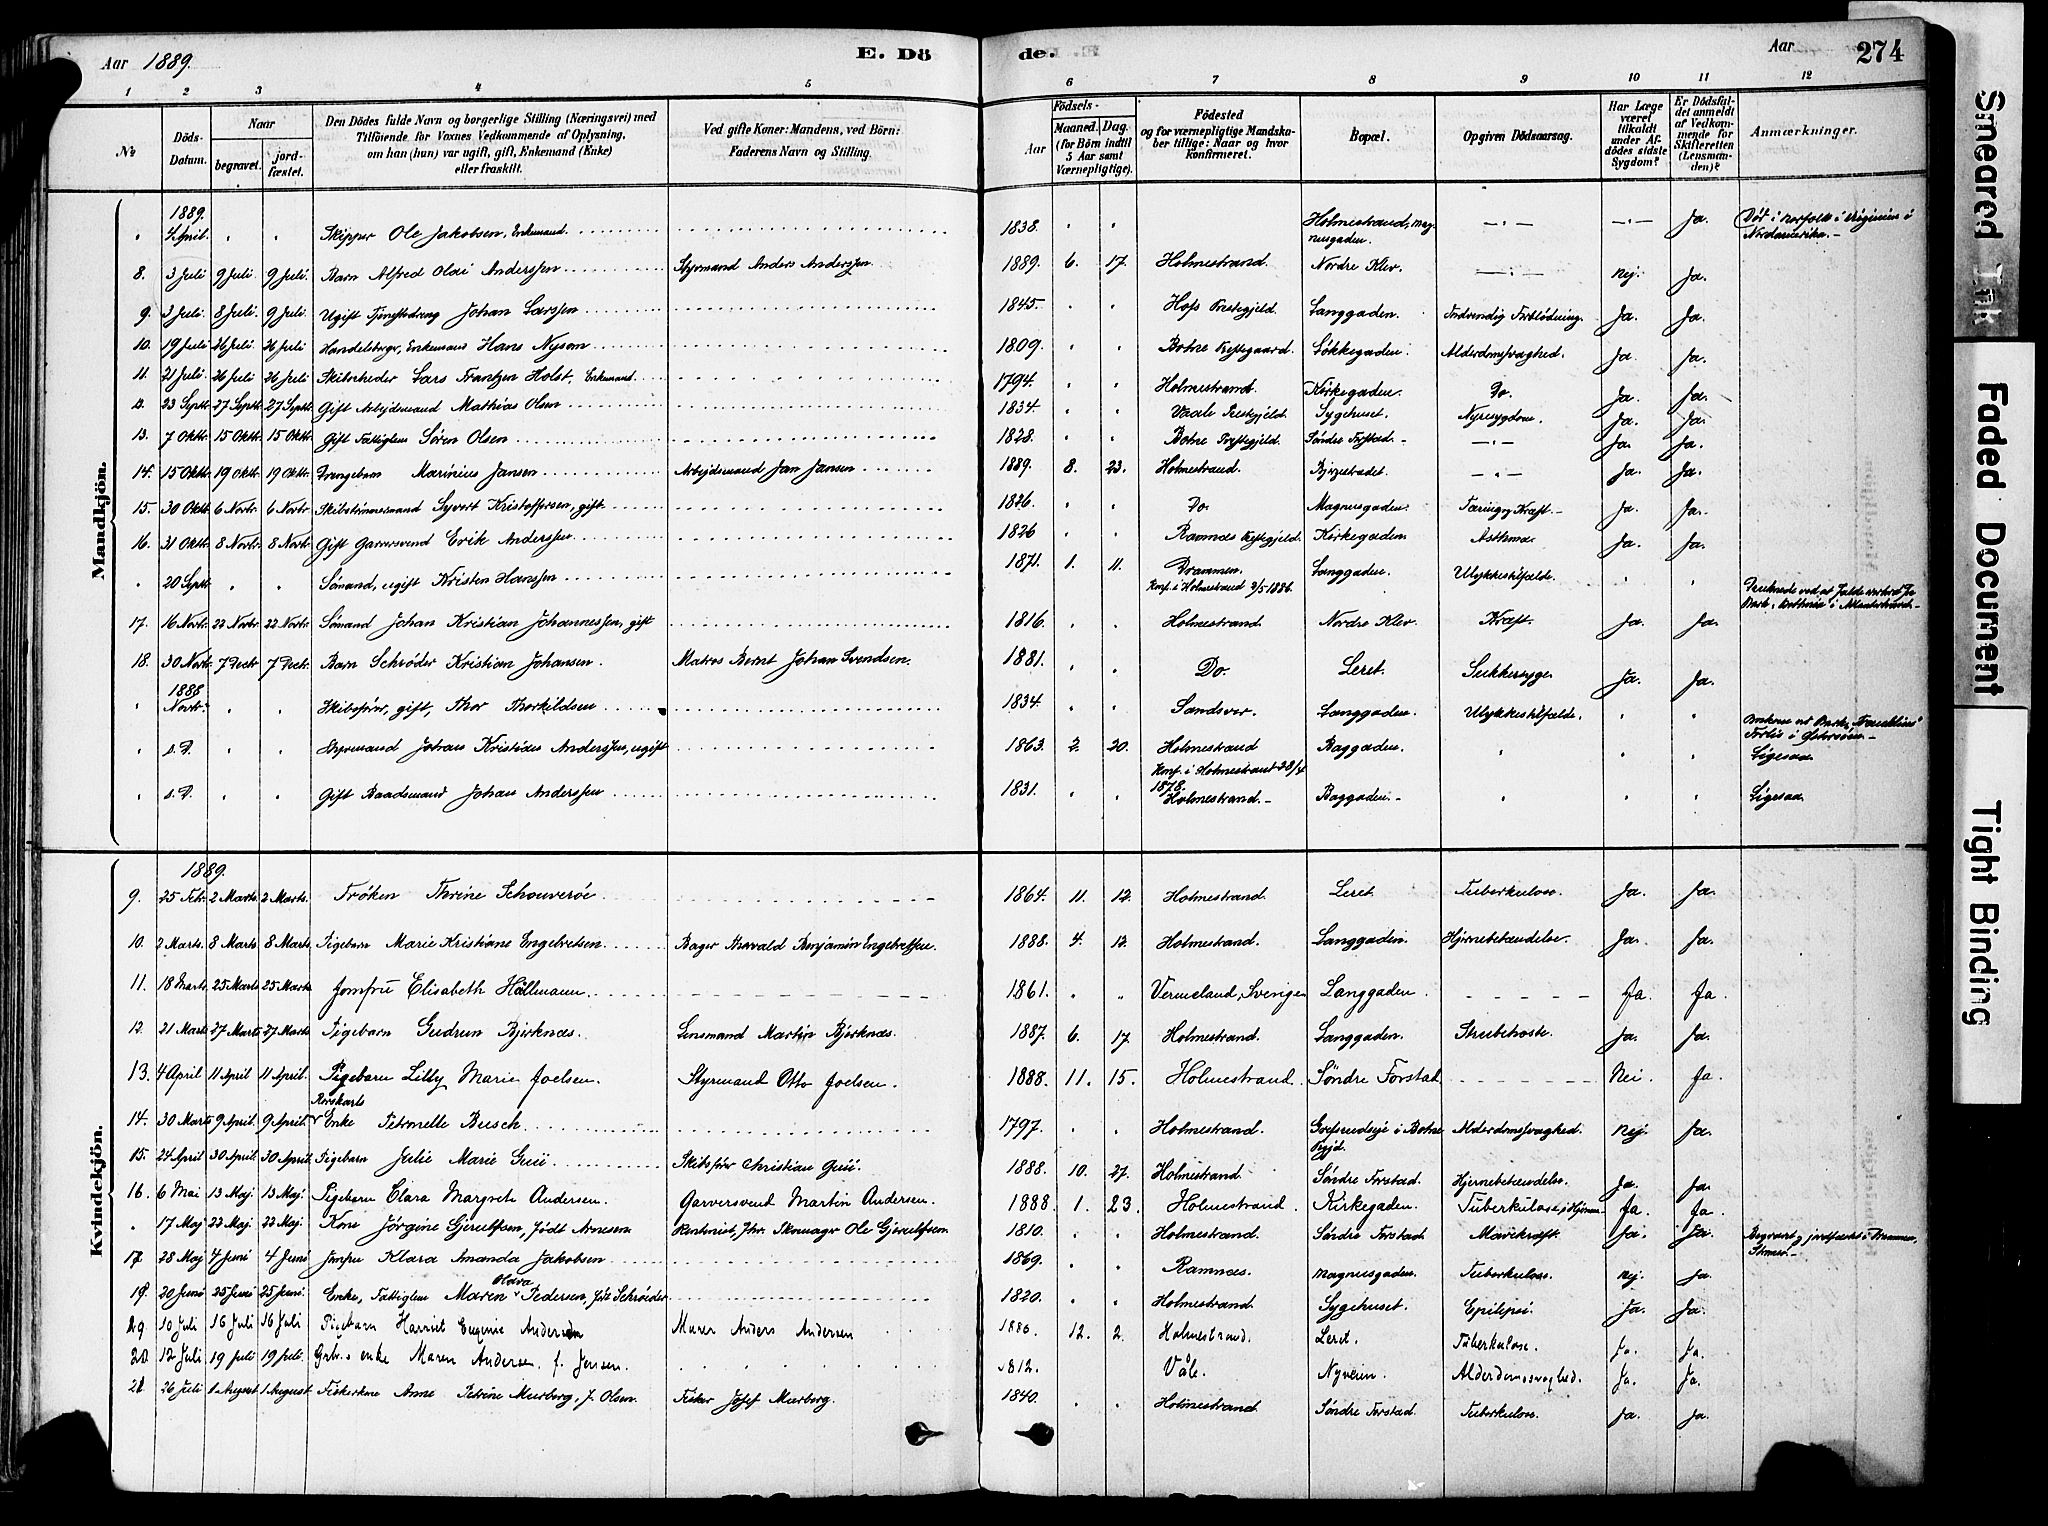 Aar 1889.
E. Dö
de.
Aar
274
1 2 3 4 5 6 7 8 9 10 11 12
No
Döds-Datum.
Naar
begravet.
jordfæstet.
Den Dödes fulde Navn og borgerlige Stilling (Næringsvei) med
Tilföiende for Voxnes Vedkommende af Oplysning,
om han (hun) var ugift, gift, Enkemand (Enke)
eller fraskilt.
Ved gifte Koner: Mandens, ved Börn:
Faderens Navn og Stilling.
Födsels-
Aar
Maaned. Dag.
(for Börn indtil
5 Aar samt
Værnepligtige).
Födested
og for værnepligtige Mandska-
ber tillige: Naar og hvor
konfirmeret.
Bopæl.
Opgiven Dödsaarsag.
Har Læge
været
tilkaldt
under Af-
dödes sidste
Sygdom?
Er Dödsfal-
det anmeldt
af Vedkom-
mende for
Skifteretten
(Lensman-
den)?
Anmærkninger.
Mandkjön.
1889.
" 4 April. " " Skipper Ole Jakobsen, Enkemand. 1838. " " Holmestrand, Magnusgaden. —"— —"— Ja. Död i Norfolk i Virginien i Nordamerika.—
8. 3 Juli 9 Juli. 9 Juli. Barn Alfred Olai Anderssen Styrmand Anders Anderssen 1889. 6. 17. Holmestrand. Nordre Klev. —"— Nej. Ja.
9. 3 Juli. 8 Juli. 9 Juli. Ugift Tjenestedreng Johan Larssen 1845. " " Hofs Prestegjeld. Langgaden. Indvendig Forblödning. Ja. Ja.
10. 19 Juli 26 Juli. 26 Juli Handelsborger, Enkemand Hans Nysom 1809. " " Botne Prestegaard. Alderdomssvaghed. Ja. Ja.
11. 21 Juli. 26 Juli 26 Juli Skibsrheder Lars Frantzen Holst, Enkemand. 1794. " " Holmestrand. Kirkegaden. Do. Ja. Ja.
12. 23 Septr. 27 Septr. 27 Septr. Gift Arbejdsmand Mathias Olsen 1834. " " Vaale Prestegjeld. Sygehuset. Nyresygdom. Ja. Ja.
13. 7 Oktr. 15 Oktr. 15 Oktr. Gift Fattiglem Sören Olsen 1828. " " Botne Prestegjeld. Söndre Forstad.— —"— Ja. Ja.
14. 15 Oktr. 19 Oktr. 19 Oktr. Drengebarn Marinius Jansen Arbejdsmand Jan Jansen 1889. 8. 23. Holmestrand. —"— Ja. Ja.
15. 30 Oktr. 6 Novbr. 6 Novbr. Skibstömmermand Syvert Kristoffersen, gift 1826. " " Do. Magnusgaden. Tæring, Kræft.— Ja. Ja.
16. 31 Oktr. 8 Novbr. 8 Novbr. Gift Garversvend Erik Anderssen 1826 Ramnæs Prestegjeld. Kirkegaden. Asthma. Ja. Ja.
" 20 Septr. " " Sömand, ugift Kristen Hanssen 1871. 1. 11. Drammen. Konf. i Holmestrand 2/5-1886. Langgaden. Ulykkestilfælde. " " Druknede ved at falde overbord fra Bark
17. 16 Novbr. 22 Novbr. 22 Novbr. Sömand Johan Kristian Johannessen, gift 1816. " " Holmestrand. Nordre Klev. Kræft. Ja. Ja.
18. 30 Novbr. 7 Decbr. 7 Decbr. Barn Schröder Kristian Johansen. Matros Bernt Johan Svendsen. 1881. " " Do. Leret. Sukkersyge. Ja. Ja.
1888
" Novbr. " " Skibsförer, gift, Thor Thorkildsen 1834. " " Sandsver. Langgaden. Ulykkestilfælde. " " Omkom ved Bark "Franklins" Forlis i Östersöen.—
" s.D. " " Styrmand Johan Kristian Anderssen, ugift 1863. 2. 20. Holmestrand Konf. i Holmestrand 28/4 1878. Baggaden. " " " Ligesaa.
" s.D. " " Gift Baadsmand Johan Anderssen 1831. " " Holmestrand.— Baggaden.— " " " Ligesaa.
Kvindekjön.
1889.
9. 25 Febr. 2 Marts. 2 Marts. Fröken Thrine Schouveröe 1864. 11. 12. Holmestrand. Leret. Tuberkulose. Ja. Ja.
10. 2 Marts. 8 Marts. 8 Marts. Pigebarn Marie Kristiane Engebretsen Bager Thorvald Benjamin Engebretsen. 1888. 4. 12. Holmestrand. Langgaden. Hjernebetændelse. Ja. Ja.
11. 18 Marts. 25 Marts. 25 Marts. Jomfru Elisabeth Hällmann 1861. " " Vermeland, Sverige Langgaden Ja. Ja.
12. 21 Marts 27 Marts 27 Marts Pigebarn Gudrun Bjerknæs. Lensmand Martin Bjerknæs. 1887. 6. 17. Holmestrand. Langgaden. Strubehoste. Ja. Ja.
13. 4 April 11 April 11 April. Pigebarn Lilly Marie Joelsen. Styrmand Otto Joelsen. 1888. 11. 15. Holmestrand. Söndre Forstad Nei. Ja.
14. 30 Marts 9 April. 9 April. Enke Petronelle Busch 1797. " " Holmestrand. i Botne Prgjd. Alderdomssvaghed. Nej. Ja.
15. 24 April 30 April. 30 April Pigebarn Julie Marie Guii Skibsförer Christian Guii. 1888. 10. 27. Holmestrand Söndre Forstad. Hjernebetændelse. Ja. Ja.
16. 6 Mai 13 Maj. 13 Maj. Pigebarn Clara Margrete Andersen. Garversvend Martin Andersen. 1888. 1. 23. Holmestrand. Kirkegaden. Tuberkulose i Hjernen Ja. Ja.
" 17 Maj 22 Maj. 22 Maj. Kone Jörgine Gjerulfsen, födt Arnesen Pantenist, fhv. Skomager Ole Gjerulfsen 1810. " " Holmestrand. Söndre Forstad. Mavekræft. Ja. Ja. Begravet og jordfæstet i Drammen, Strömsö.—
17 28 Maj 4 Juni 4 Juni Jomfru Klara Amanda Jakobsen 1869. " " Ramnæs. Magnusgaden. Tuberkulose. Nej. Ja.
18. 20 Juni 25 Juni 25 Juni. Enke, Fattiglem Maren Olava Pedersen, födt Schröder 1820. " " Holmestrand. Sygehuset. Epilepsi. Ja. Ja.
19 10 Juli 16 Juli 16 Juli Pigebarn Harriet Eugenie Andersen Murer Anders Andersen 1886. 12. 2. Holmestrand. Leret. Tuberkulose. Ja. Ja.
20 12 Juli 19 Juli 19 Juli. enke Maren Andersen. f. Jensen. 1812. Våle. Nyveien. Alderdomssvaghed. Ja. Ja.
21 26 Juli 1 August 1 August Fiskerkone Anne Petrine Murberg, f. Olsen. Fisker Josef Murberg. 1840. " " Holmestrand Söndre Forstad. Tuberkulose. Ja. Ja.
Smeared Ink
Faded Document
Tight Binding